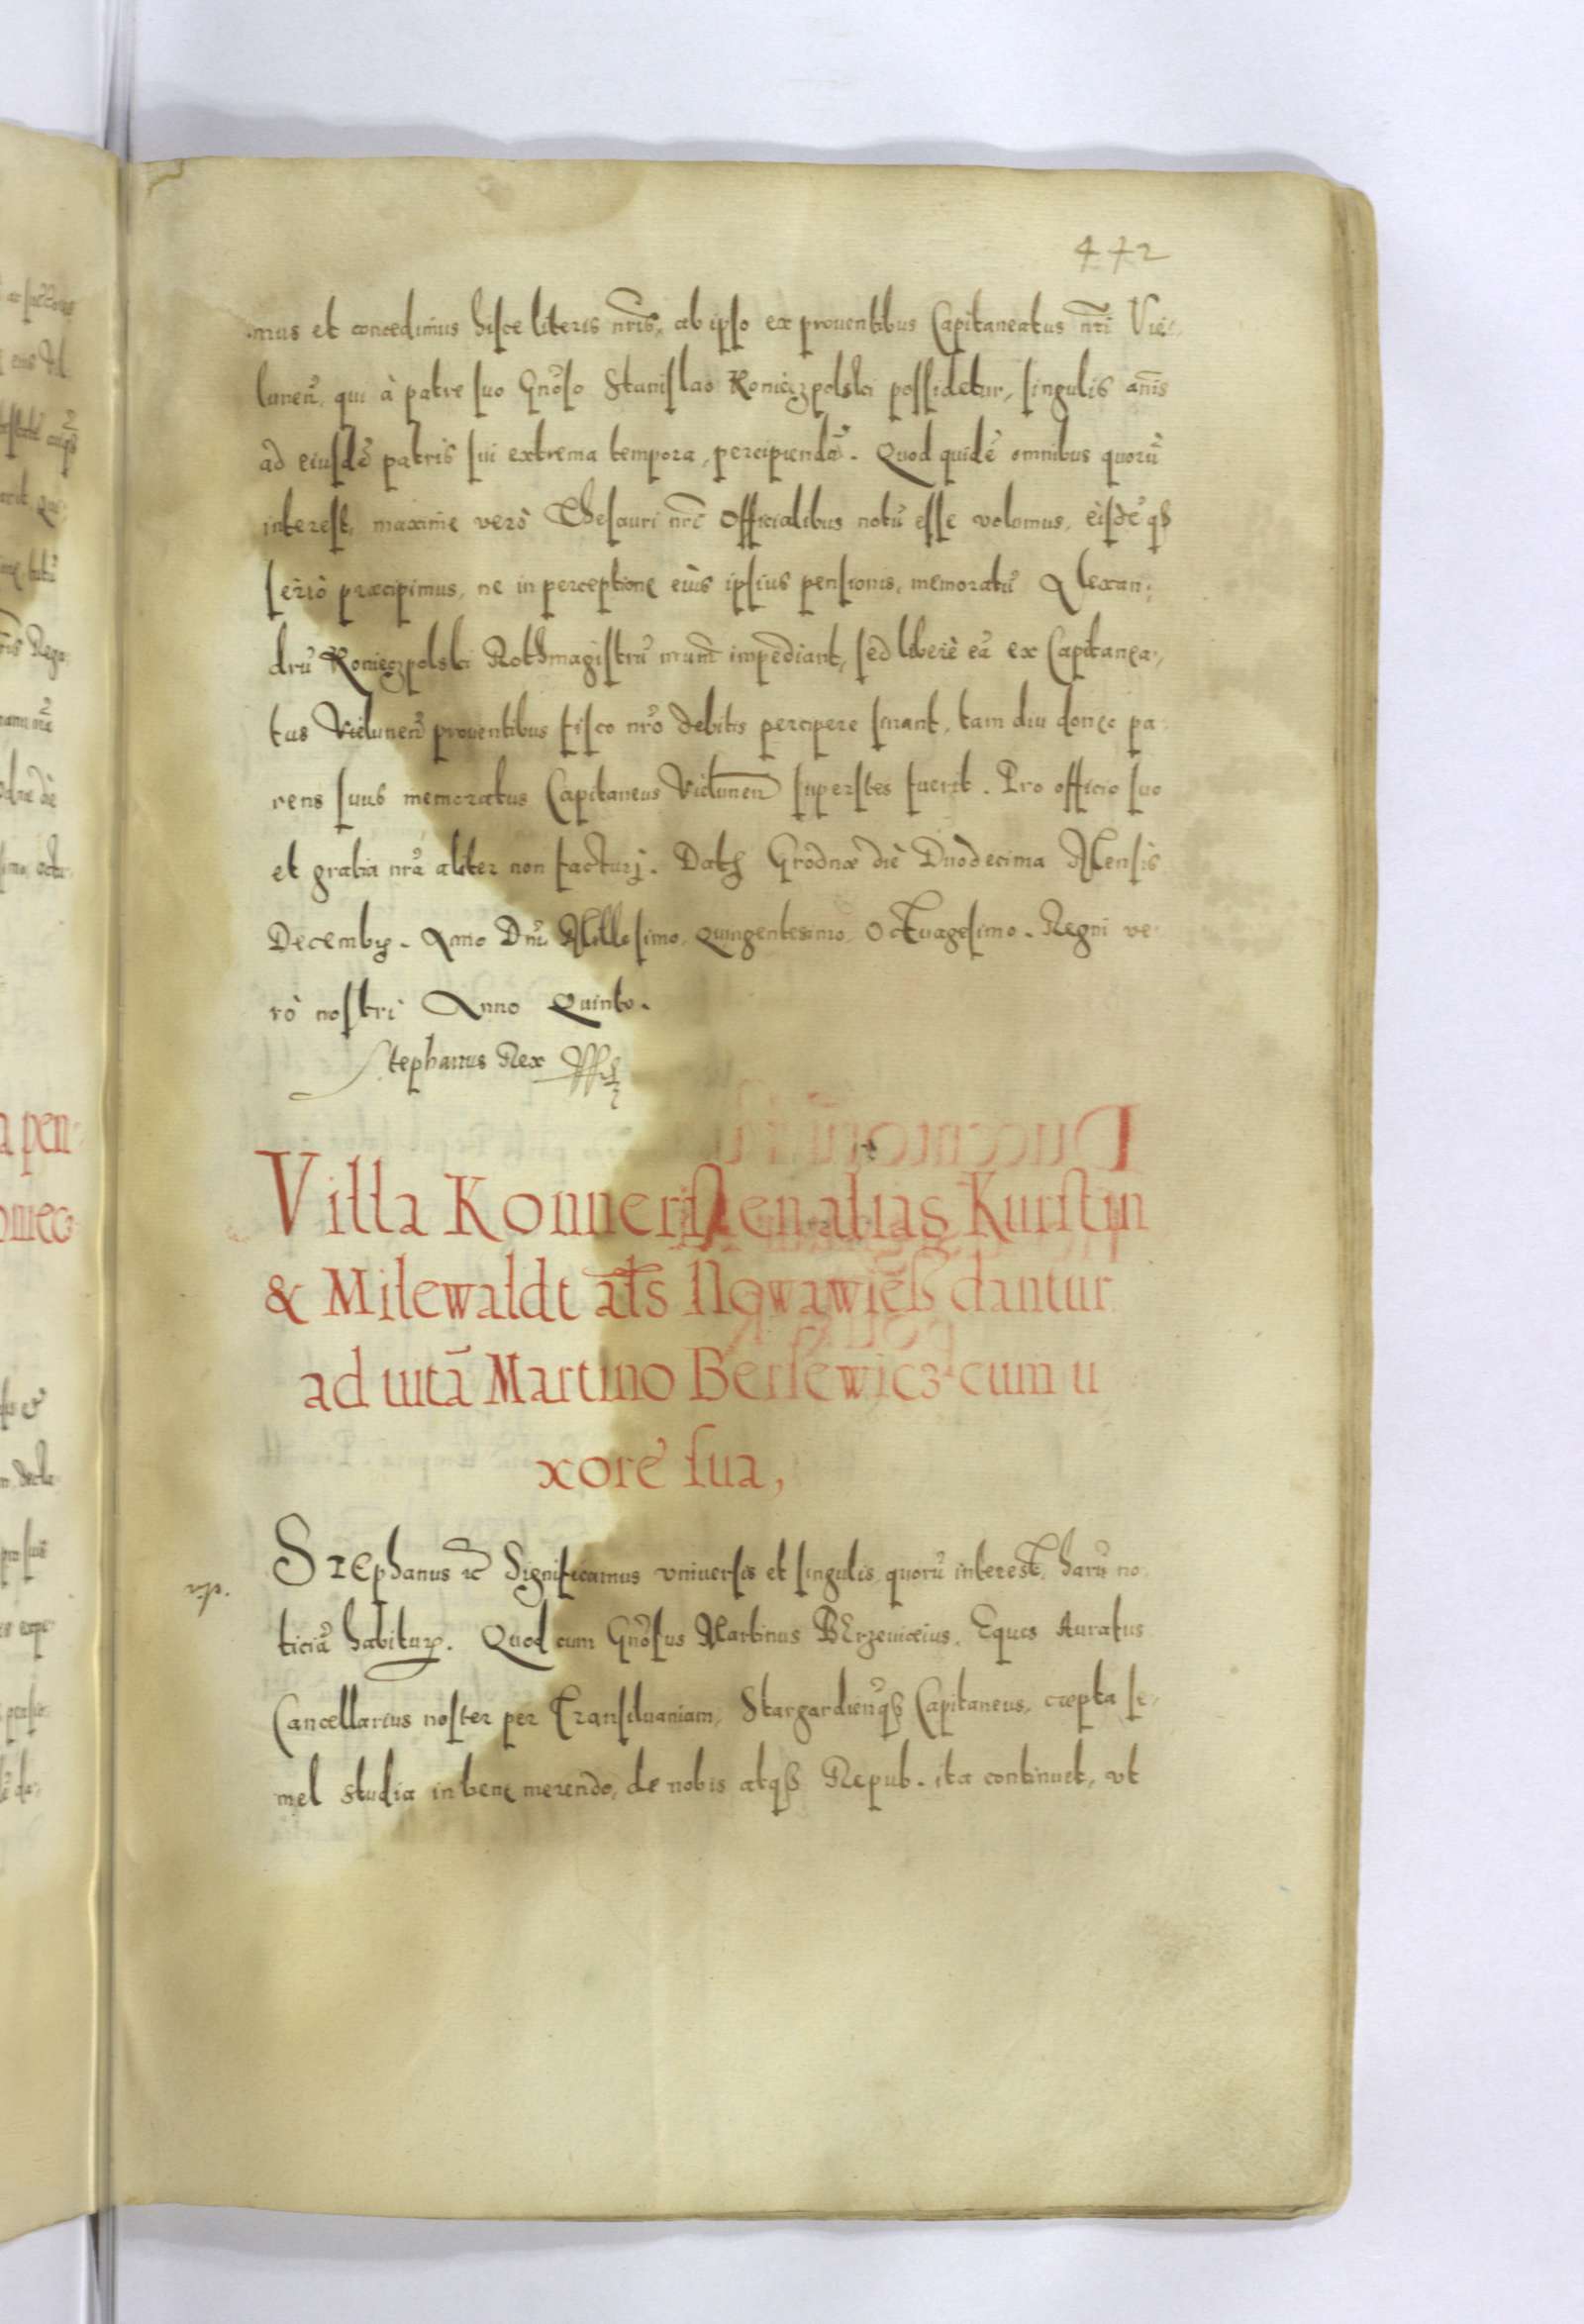 472
mus et concedimus hisce literis nr̃is, ab ipso ex prouentibus Capitaneatus nr̃i Vie-
lunen̄, qui à patre suo Gn̄oso Stanislao Konieczpolski possidetur, singulis an̄is
ad eiusdē patris sui extrema tempora, percipiendā. Quod quidē omnibus quorū
interest, maxime verò Thesauri nr̃i Officialibus notū esse volumus, eisdēqꝫ
seriò præcipimus, ne in perceptione eius ipsius pensionis, memoratū Alexan-
drū Koniеczpolski Rothmagistrū nr̃um impediant, sed liberè eā ex Capitanea-
tus Vielunen̄ prouentibus fisco nr̃o debitis percipere sinant, tam diu donec pa-
rens suus memoratus Capitaneus Vielunen̄ superstes fuerit. Pro officio suo
et gratia nr̃a aliter non facturj. Datꝫ Grodnæ diè Duodecima Mensis
Decembꝫ. Anno Dn̄i Millesimo, Quingentesimo, Octuagesimo. Regni ve-
rò nostri Anno Quinto.
Stephanus Rex
Villa Konnersten alias Kurstin
& Milewaldt al̄s Nowawieß dantur
ad uitā Martino Bersewicz cum u
xorē sua,
Stephanus ꝛc̄ Significamus vniuersis et singulis, quorū interest, harū no-
ticiā habiturꝫ. Quod cum Gn̄osus Martinus BErzeuicius, Eques Auratus
Cancellarius noster per Transiluaniam, Stargardien̄qꝫ Capitaneus, cæpta se-
mel studia in bene merendo, de nobis atqꝫ Repub. ita continuet, vt